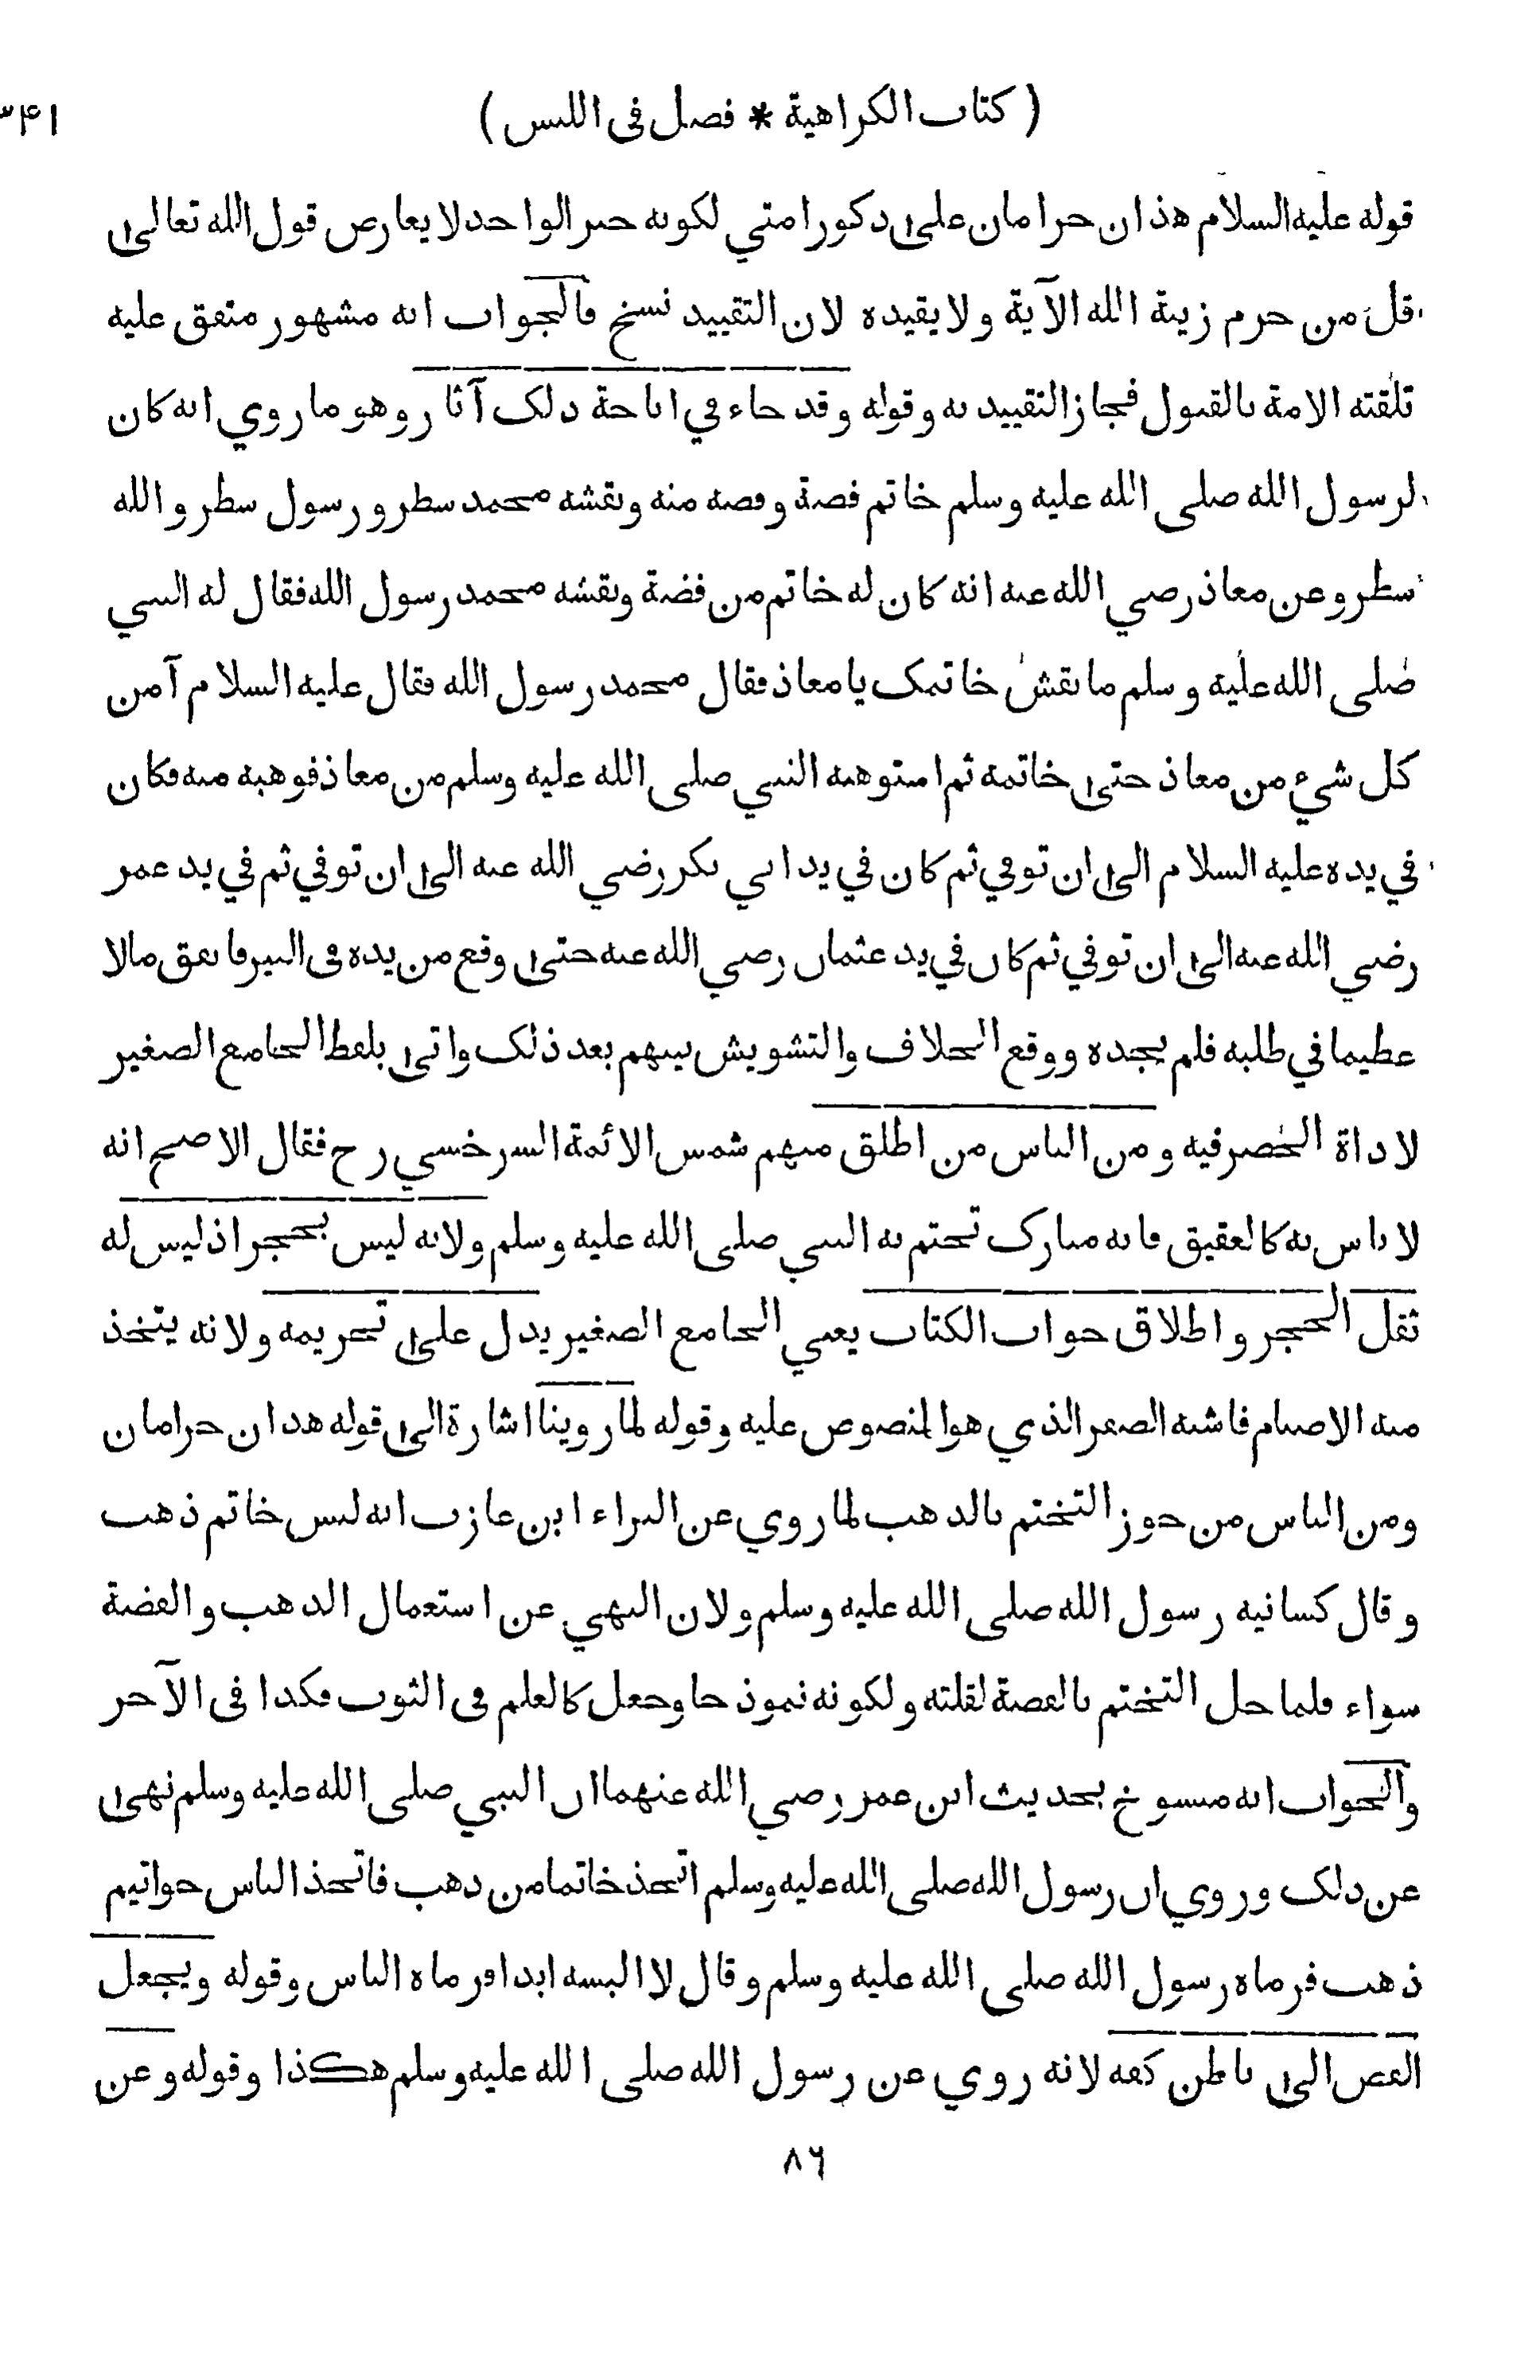 ( كتاب الكراهية * فصل في اللبس ) ٣٤١
قوله عليه السلام هذان حرامان على ذكور امتي لكونه خبر الواحد لا يعارض قول الله تعالى
قل من حرم زينة الله الآية ولا يقيده لان التقييد نسخ فالجواب انه مشهور متفق عليه
تلقته الامة بالقبول فجاز التقييد به وقوله وقد جاء في اباحة ذلك آثار وهو ما روي انه كان
لرسول الله صلى الله عليه وسلم خاتم فضة وفصه منه ونقشه محمد سطر ورسول سطر والله
سطر وعن معاذ رضي الله عنه انه كان له خاتم من فضة ونقشه محمد رسول الله فقال له النبي
صلى الله عليه وسلم ما نقش خاتمك يا معاذ فقال محمد رسول الله فقال عليه السلام آمن
كل شيء من معاذ حتى خاتمه ثم استوهبه النبي صلى الله عليه وسلم من معاذ فوهبه منه فكان
في يده عليه السلام الى ان توفي ثم كان في يد ابي بكر رضي الله عنه الى ان توفي ثم في يد عمر
رضي الله عنه الى ان توفي ثم كان في يد عثمان رضي الله عنه حتى وقع من يده في البير فانفق مالا
عظيما في طلبه فلم يجده ووقع الخلاف والتشويش بينهم بعد ذلك واتى بلفظ الجامع الصغير
لاداة الحصر فيه ومن الناس من اطلق منهم شمس الائمة السرخسي رح فقال الاصح انه
لا باس به كالعقيق فانه مبارك تختم به النبي صلى الله عليه وسلم ولانه ليس بحجر اذ ليس له
ثقل الحجر واطلاق جواب الكتاب يعني الجامع الصغير يدل على تحريمه ولانه يتخذ
منه الاصنام فاشبه الصفر الذي هو المنصوص عليه وقوله لما روينا اشارة الى قوله هذان حرامان
ومن الناس من جوز التختم بالذهب لما روي عن البراء ابن عازب انه لبس خاتم ذهب
وقال كسانيه رسول الله صلى الله عليه وسلم ولان النهي عن استعمال الذهب والفضة
سواء فلما حل التختم بالفضة لقلته ولكونه نموذجا وجعل كالعلم في الثوب فكذا في الآخر
والجواب انه منسوخ بحديث ابن عمر رضي الله عنهما ان النبي صلى الله عليه وسلم نهى
عن ذلك وروي ان رسول الله صلى الله عليه وسلم اتخذ خاتما من ذهب فاتخذ الناس خواتيم
ذهب فرماه رسول الله صلى الله عليه وسلم وقال لا البسه ابدا فرماه الناس وقوله ويجعل
الفص الى باطن كفه لانه روي عن رسول الله صلى الله عليه وسلم هكذا وقوله وعن
٨٦